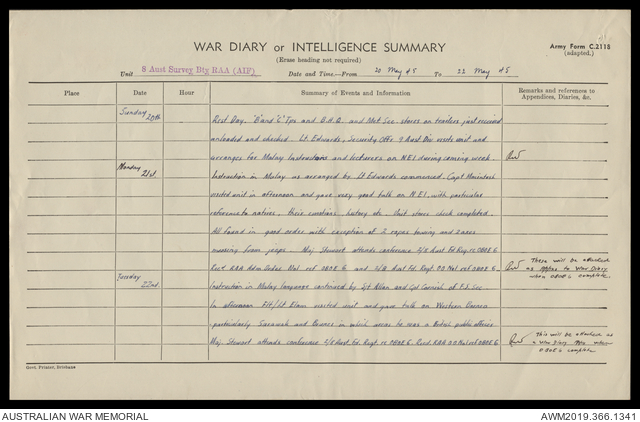 WAR DIARY or INTELLIGENCE SUMMARY
(Erase heading not required)
Army Form C.2118
(adapted.)
Unit 8 Aust Survey Bty RAA (AIF) Date and Time.—From 20 May 45 To 22 May 45
Place Date Hour Summary of Events and Information Remarks and references to Appendices, Diaries, &c.
Sunday 20th Rest Day. "B" and "C" Tps and B.H.Q. and Met Sec. stores on trailers just received
unloaded and checked. Lt. Edwards, Security Offr 9 Aust Div visits unit and
arranges for Malay Instructors and lecturers on N.E.I. during coming week.
Monday 21st. Instruction in Malay as arranged by Lt Edwards commenced. Capt. Macintosh
visited unit in afternoon and gave very good talk on N.E.I., with particular
reference to natives, their customs, history etc. Unit stores check completed.
All found in good order with exception of 2 ropes towing and 2 axes
missing from jeeps. Maj. Stewart attends conference 2/8 Aust. Fd. Reg. re OBOE 6
Recd. RAA Adm Order ref OBOE 6 and 2/8 Aust. Fd. Regt. OO ref OBOE 6. These will be attached
as Appxs to War Diary
when OBOE 6 is complete.
Tuesday 22nd. Instruction in Malay language continued by Sgt Allan and Cpl Cornish of F.S. Sec
In afternoon Flt/Lt. visited unit and gave talk on Western Borneo
particularly Sarawak and Brunei in which areas he was a British public officer.
Maj. Stewart attends conference 2/8 Aust. Fd. Regt. re OBOE 6. Recd. RAA OO ref OBOE 6 This will be attached as
a War Diary Appx when
OBOE 6 complete
Govt. Printer, Brisbane
AUSTRALIAN WAR MEMORIAL AWM2019.366.1341